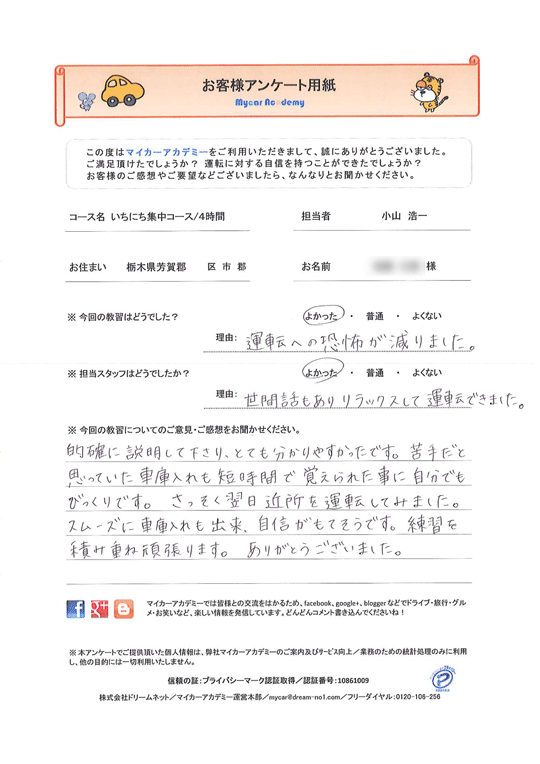 お客様アンケート用紙
Mycar Academy
この度はマイカーアカデミーをご利用いただきまして、誠にありがとうございました。
ご満足頂けたでしょうか？ 運転に対する自信を持つことができたでしょうか？
お客様のご感想やご要望などございましたら、なんなりとお聞かせください。
コース名 いちにち集中コース/4時間 担当者 小山 浩一
お住まい 栃木県芳賀郡 区 市 郡 お名前 様
※ 今回の教習はどうでした？ よかった ・ 普通 ・ よくない
理由: 運転への恐怖が減りました。
※ 担当スタッフはどうでしたか？ よかった ・ 普通 ・ よくない
理由: 世間話もありリラックスして運転できました。
※ 今回の教習についてのご意見・ご感想をお聞かせください。
的確に説明して下さり、とても分かりやすかったです。苦手だと
思っていた車庫入れも短時間で覚えられた事に自分でも
びっくりです。 さっそく翌日近所を運転してみました。
スムーズに車庫入れも出来、自信がもてそうです。練習を
積み重ね頑張ります。 ありがとうございました。
マイカーアカデミーでは皆様との交流をはかるため、facebook、google+、bloggerなどでドライブ・旅行・グル
メ・お笑いなど、楽しい情報を発信しています。どんどんコメント書き込んでくださいね！
※ 本アンケートでご提供頂いた個人情報は、弊社マイカーアカデミーのご案内及びサービス向上／業務のための統計処理のみに利用
し、他の目的には一切利用いたしません。
信頼の証：プライバシーマーク認証取得／認証番号：10861009
株式会社ドリームネット／マイカーアカデミー運営本部／mycar@dream-no1.com／フリーダイヤル：0120-106-256